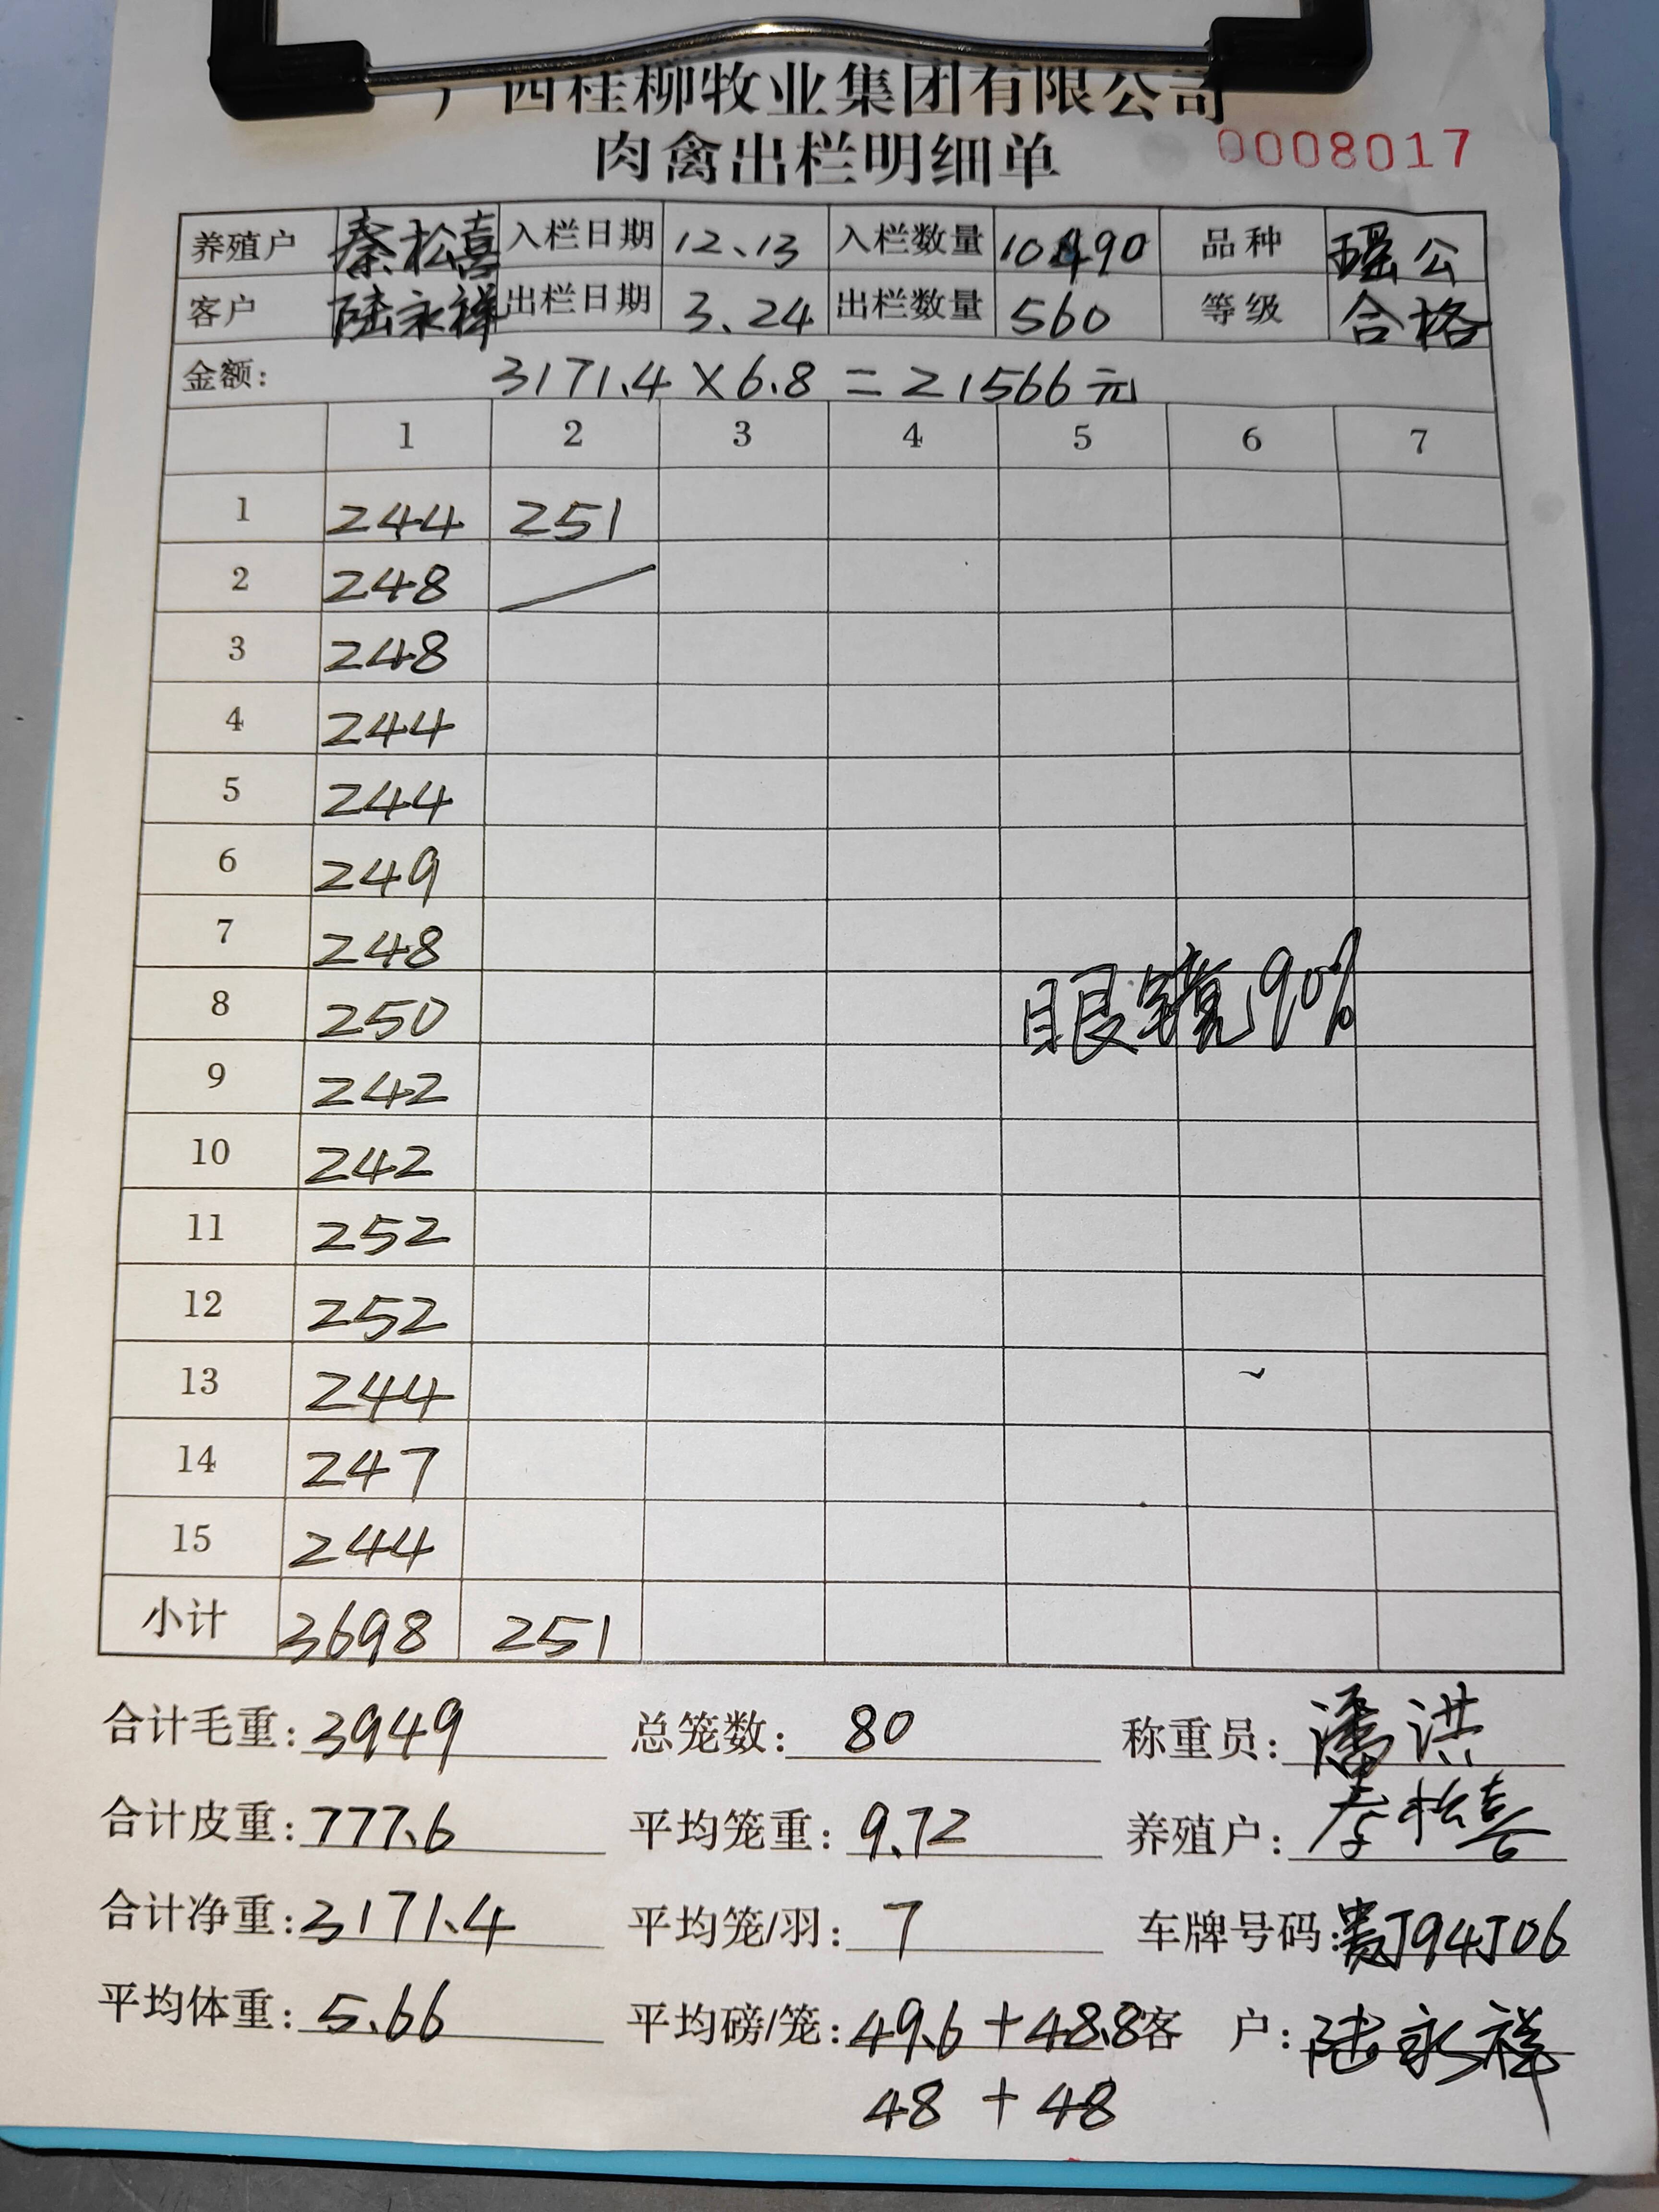 广西桂柳牧业集团有限公司
肉禽出栏明细单 0008017
养殖户 秦松喜 入栏日期 12.13 入栏数量 10490 品种 瑶公
客户 陆永祥 出栏日期 3.24 出栏数量 560 等级 合格
金额: 3171.4×6.8=21566元
1 2 3 4 5 6 7
1 244 251
2 248
3 248
4 244
5 244
6 249
7 248
8 250
眼镜90%
9 242
10 242
11 252
12 252
13 244
14 247
15 244
小计 3698 251
合计毛重: 3949 总笼数: 80 称重员: 潘洪
合计皮重: 777.6 平均笼重: 9.72 养殖户: 秦松喜
合计净重: 3171.4 平均笼/羽: 7 车牌号码: 贵J94J06
平均体重: 5.66 平均磅/笼: 49.6+48.8 客户: 陆永祥
48+48